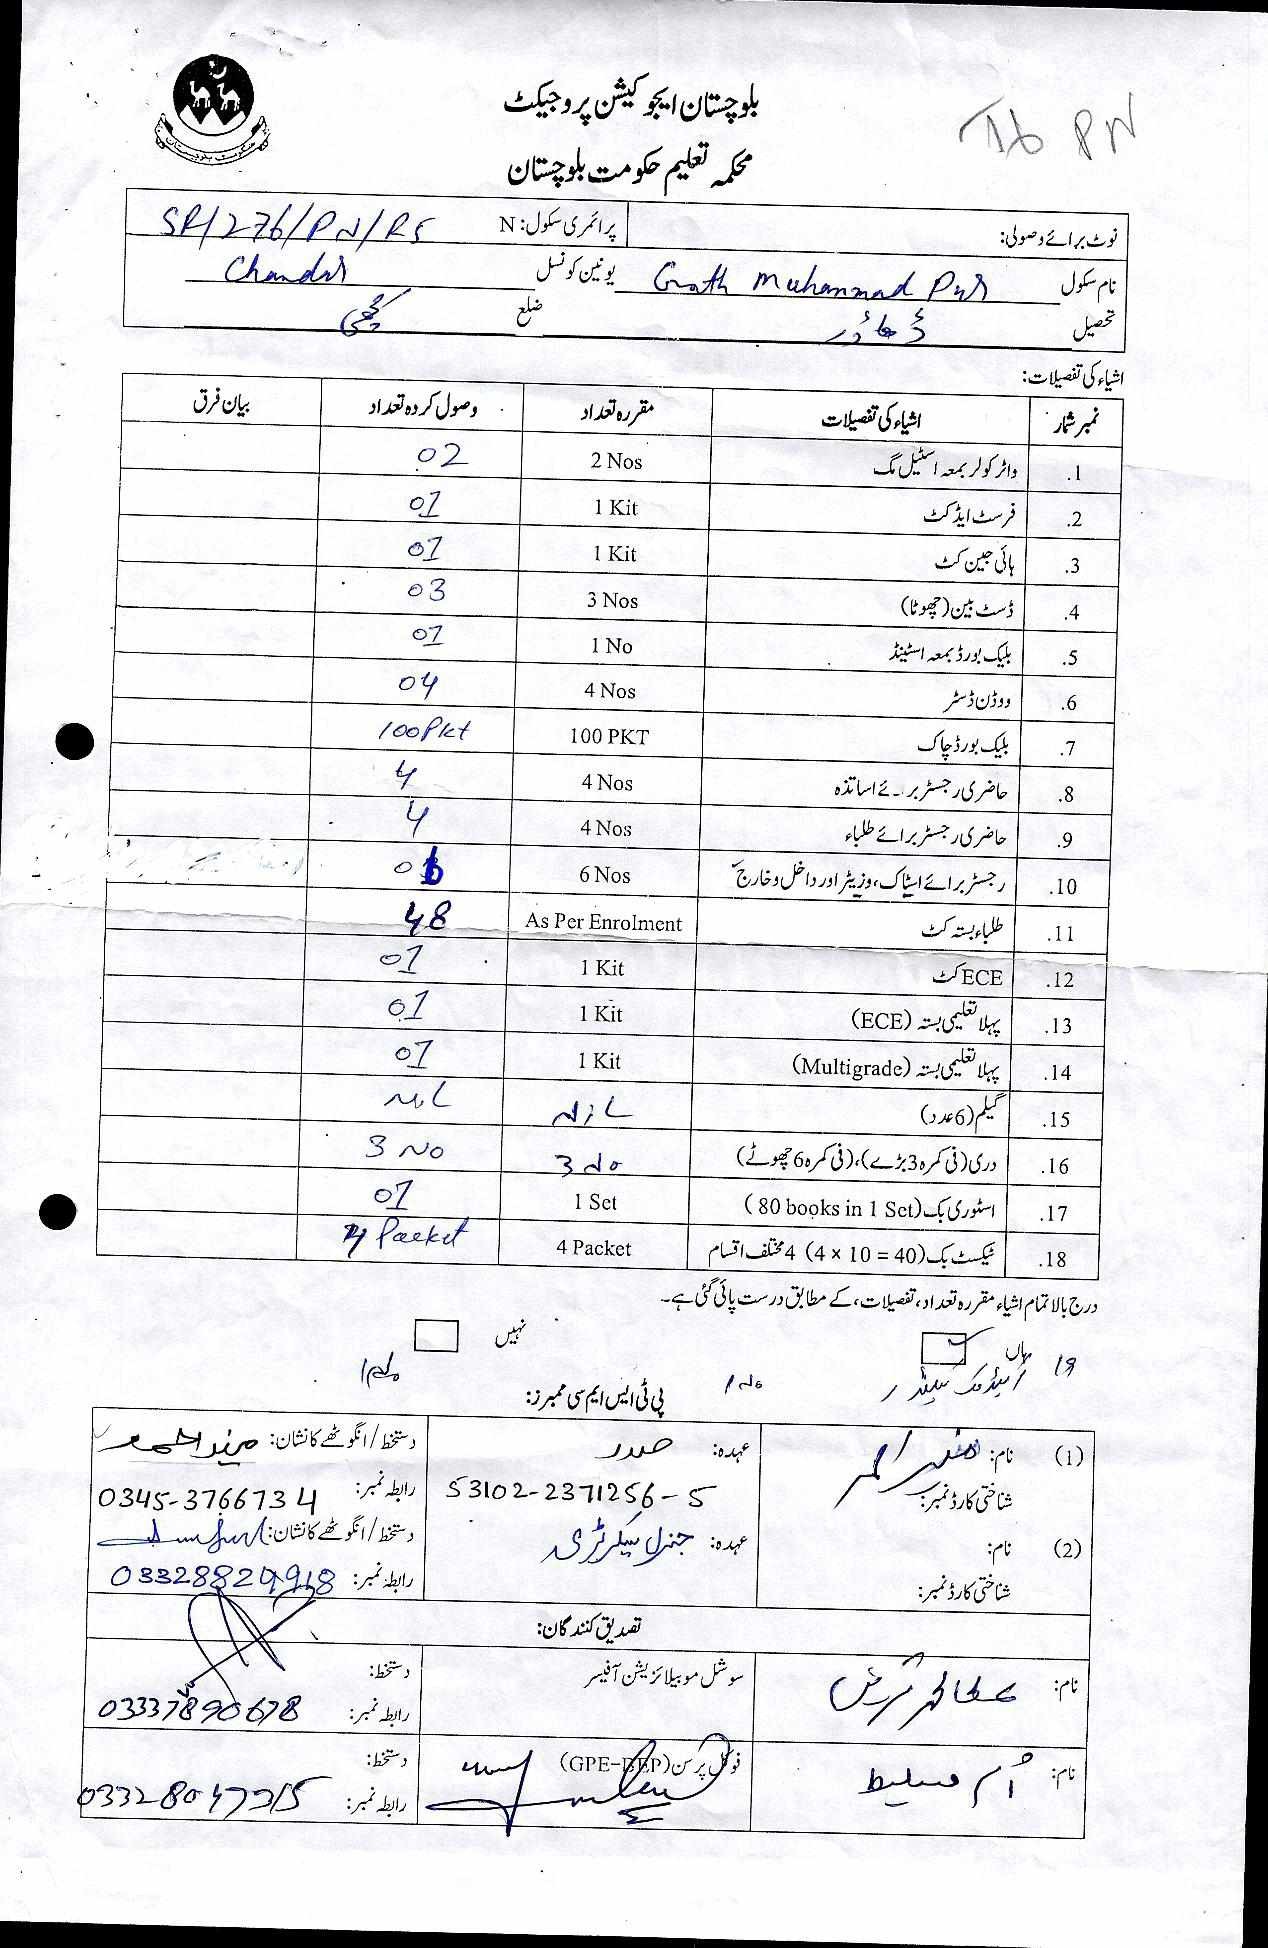 بلوچستان ایجوکیشن پروجیکٹ
T6 PN
محکمہ تعلیم حکومت بلوچستان
نوٹ برائے وصولی: پرائمری سکول: N SR/276/PN/RS
نام سکول Goth Muhammad Pur یونین کونسل Chandar
تحصیل ڈھاڈر ضلع کچھی
اشیاء کی تفصیلات:
نمبر شمار اشیاء کی تفصیلات مقررہ تعداد وصول کردہ تعداد بیان فرق
1. واٹر کولر بمعہ اسٹیل مگ 2 Nos 02
2. فرسٹ ایڈ کٹ 1 Kit 01
3. ہائی جین کٹ 1 Kit 01
4. ڈسٹ بین (چھوٹا) 3 Nos 03
5. بلیک بورڈ بمعہ اسٹینڈ 1 No 01
6. ووڈن ڈسٹر 4 Nos 04
7. بلیک بورڈ چاک 100 PKT 100 Pkt
8. حاضری رجسٹر برائے اساتذہ 4 Nos 4
9. حاضری رجسٹر برائے طلباء 4 Nos 4
10. رجسٹر برائے اسٹاک، وزیٹر اور داخل و خارج 6 Nos 06
11. طلباء بستہ کٹ As Per Enrolment 48
12. ECE کٹ 1 Kit 01
13. پہلا تعلیمی بستہ (ECE) 1 Kit 01
14. پہلا تعلیمی بستہ (Multigrade) 1 Kit 01
15. گیلم (6 عدد) NIL NIL
16. دری (فی کمرہ 3 بڑے)، (فی کمرہ 6 چھوٹے) 3 No 3 No
17. اسٹوری بک (80 books in 1 Set) 1 Set 01
18. ٹیکسٹ بک (4 × 10 = 40) 4 مختلف اقسام 4 Packet 4 Packet
درج بالا تمام اشیاء مقررہ تعداد، تفصیلات، کے مطابق درست پائی گئی ہے۔
ہاں نہیں
19
پی ٹی ایس ایم سی ممبرز:
(1) نام: منیر احمد عہدہ: صدر دستخط/انگوٹھے کا نشان: منیر احمد
شناختی کارڈ نمبر: 53102-2371256-5 رابطہ نمبر: 0345-3766734
(2) نام: عہدہ: جنرل سیکرٹری دستخط/انگوٹھے کا نشان:
شناختی کارڈ نمبر: رابطہ نمبر: 03328824918
تصدیق کنندگان:
نام: سوشل موبیلائزیشن آفیسر دستخط:
رابطہ نمبر: 03337890678
نام: فوکل پرسن (GPE-BEP) دستخط:
رابطہ نمبر: